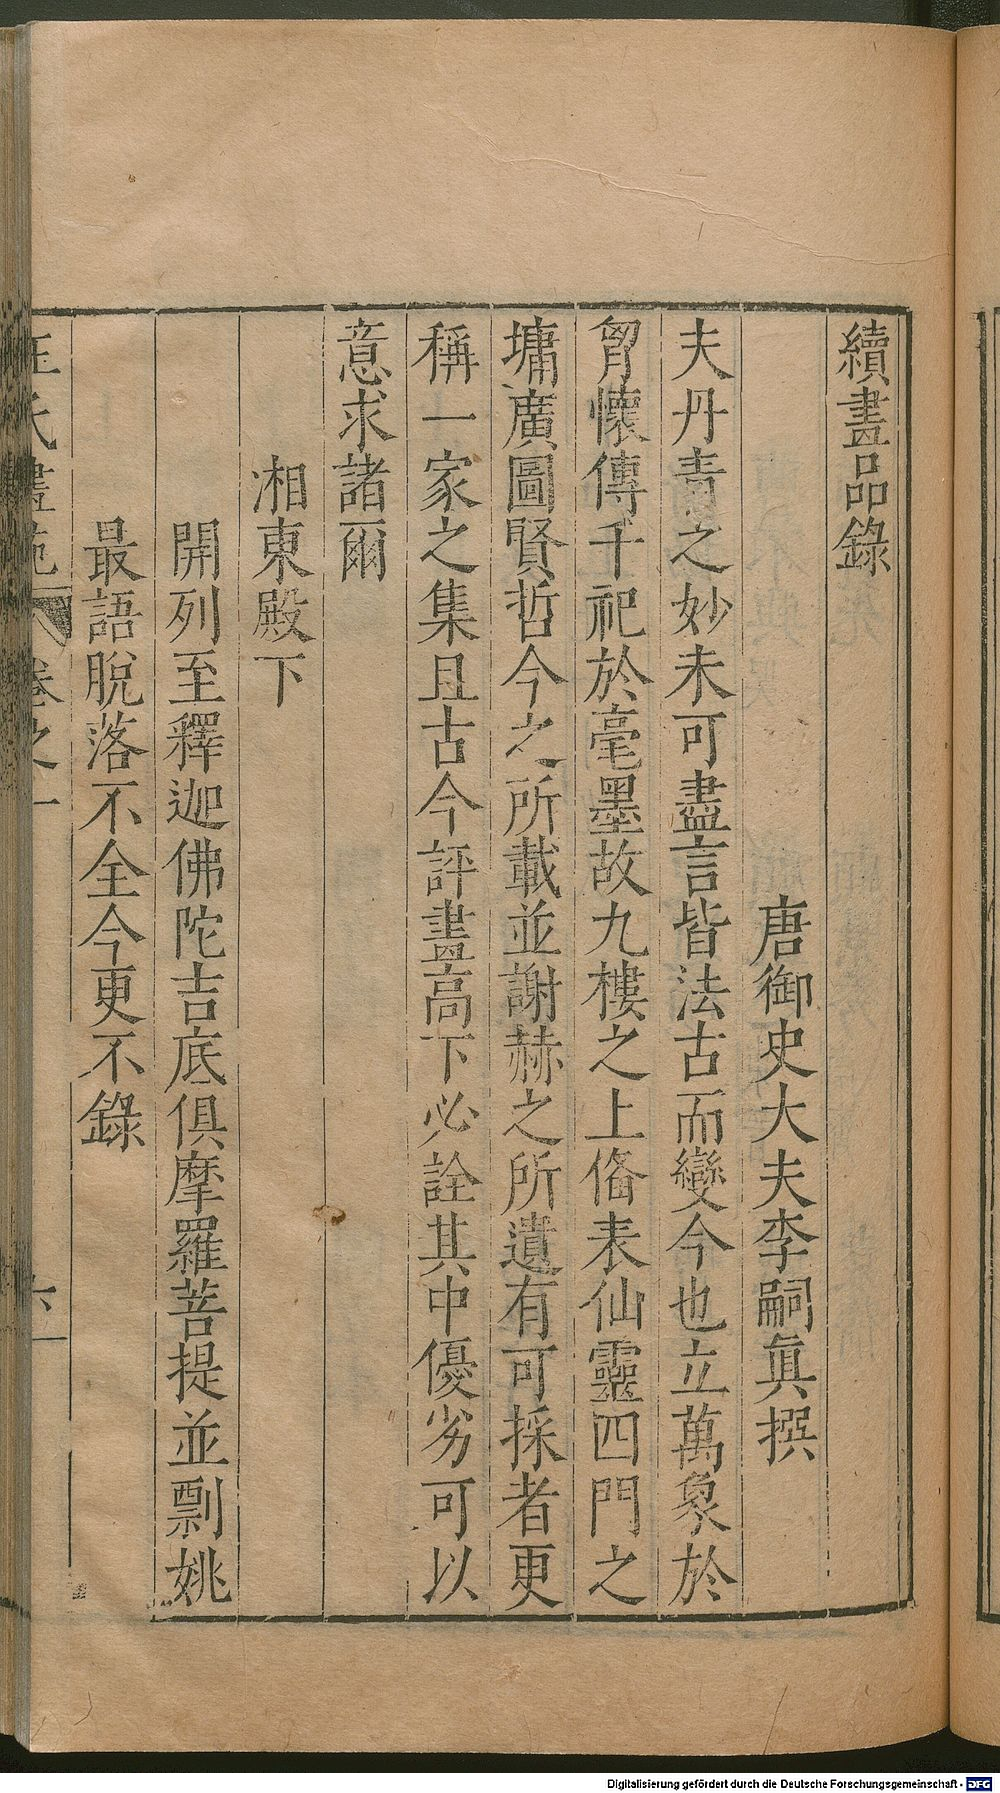 續畫品錄
唐御史大夫李嗣真撰
夫丹青之妙未可盡言皆法古而變今也立萬象於
胷懷傳千祀於毫墨故九樓之上俻表仙靈四門之
墉廣圖賢哲今之所載並謝赫之所遺有可採者更
稱一家之集且古今評畫高下必詮其中優劣可以
意求諸爾
湘東殿下
開列至釋迦佛陀吉底俱摩羅菩提並剽姚
最語脫落不全今更不錄
王氏畫苑 卷之一 六
Digitalisierung gefördert durch die Deutsche Forschungsgemeinschaft - DFG